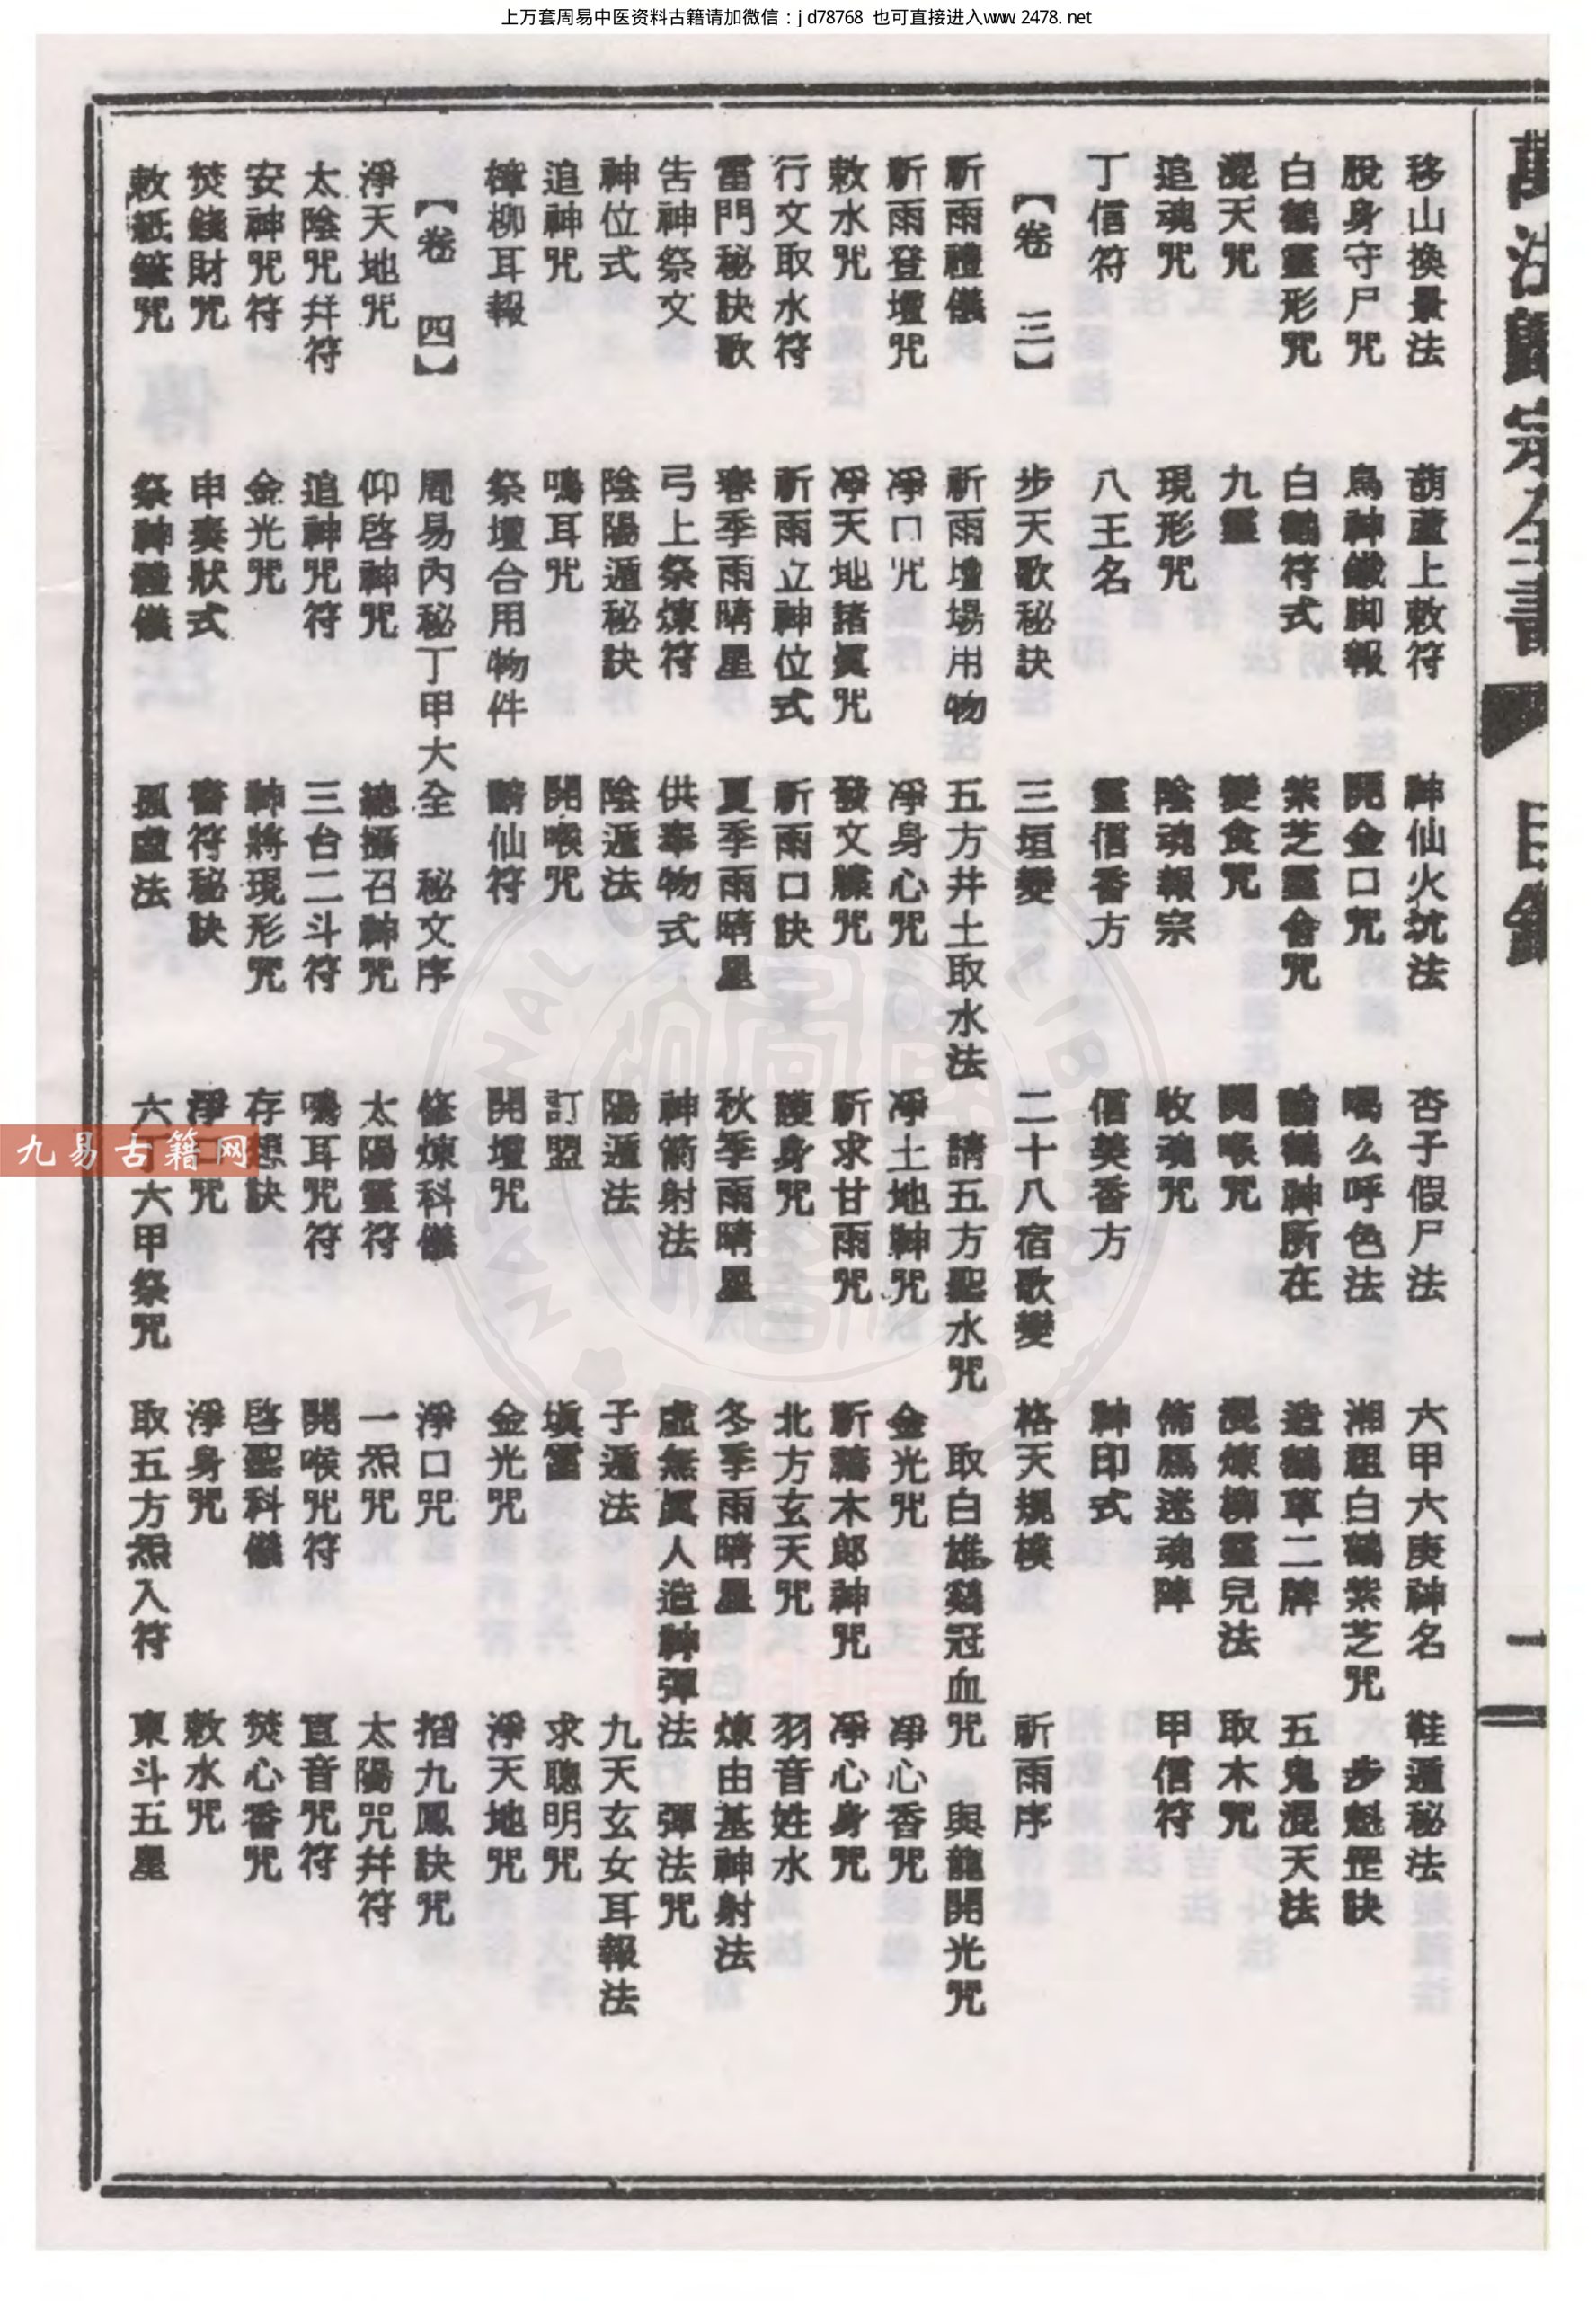 上万套周易中医资料古籍请加微信：jd78768 也可直接进入www.2478.net
萬法歸宗全書 目錄 二
移山換景法 葫蘆上敕符 神仙火坑法 杏子假尸法 六甲六庚神名 鞋遁秘法
脫身守尸咒 烏神鐵脚報 開金口咒 喝么呼色法 湘祖白鶴紫芝咒 步魁罡訣
白鶴靈形咒 白鶴符式 紫芝靈舍咒 論鶴神所在 造鶴草二牌 五鬼混天法
混天咒 九靈 變食咒 開喉咒 混煉柳靈兒法 取木咒
追魂咒 現形咒 陰魂報宗 收魂咒 佈鴈迷魂陣 甲信符
丁信符 八王名 靈信香方 信美香方 神印式
【卷 三】 步天歌秘訣 三垣變 二十八宿歌變 格天規模 祈雨序
祈雨禮儀 祈雨壇場用物 五方井土取水法 請五方聖水咒 取白雄鷄冠血咒 與龍開光咒
祈雨登壇咒 凈口咒 凈身心咒 凈土地神咒 金光咒 凈心香咒
敕水咒 凈天地諸眞咒 發文牒咒 祈求甘雨咒 祈禱木郎神咒 凈心身咒
行文取水符 祈雨立神位式 祈雨口訣 護身咒 北方玄天咒 羽音姓水
雷門秘訣歌 春季雨晴星 夏季雨晴星 秋季雨晴星 冬季雨晴星 煉由基神射法
告神祭文 弓上祭煉符 供奉物式 神箭射法 虛無眞人造神彈法 彈法咒
神位式 陰陽遁秘訣 陰遁法 陽遁法 子遁法 九天玄女耳報法
追神咒 鳴耳咒 開喉咒 訂盟 塡雷 求聰明咒
樟柳耳報 祭壇合用物件 請仙符 開壇咒 金光咒 淨天地咒
【卷 四】 周易內秘丁甲大全 秘文序 修煉科儀 淨口咒 搯九鳳訣咒
淨天地咒 仰啓神咒 總攝召神咒 太陽靈符 一炁咒 太陽咒幷符
太陰咒幷符 追神咒符 三台二斗符 鳴耳咒符 開喉咒符 直音咒符
安神咒符 金光咒 神將現形咒 存想訣 啓聖科儀 焚心香咒
焚錢財咒 申奏狀式 書符秘訣 淨口咒 淨身咒 敕水咒
敕紙筆咒 祭神禮儀 孤虛法 六丁六甲祭咒 取五方炁入符 東斗五星
NATIONAL LIBR
九易古籍网